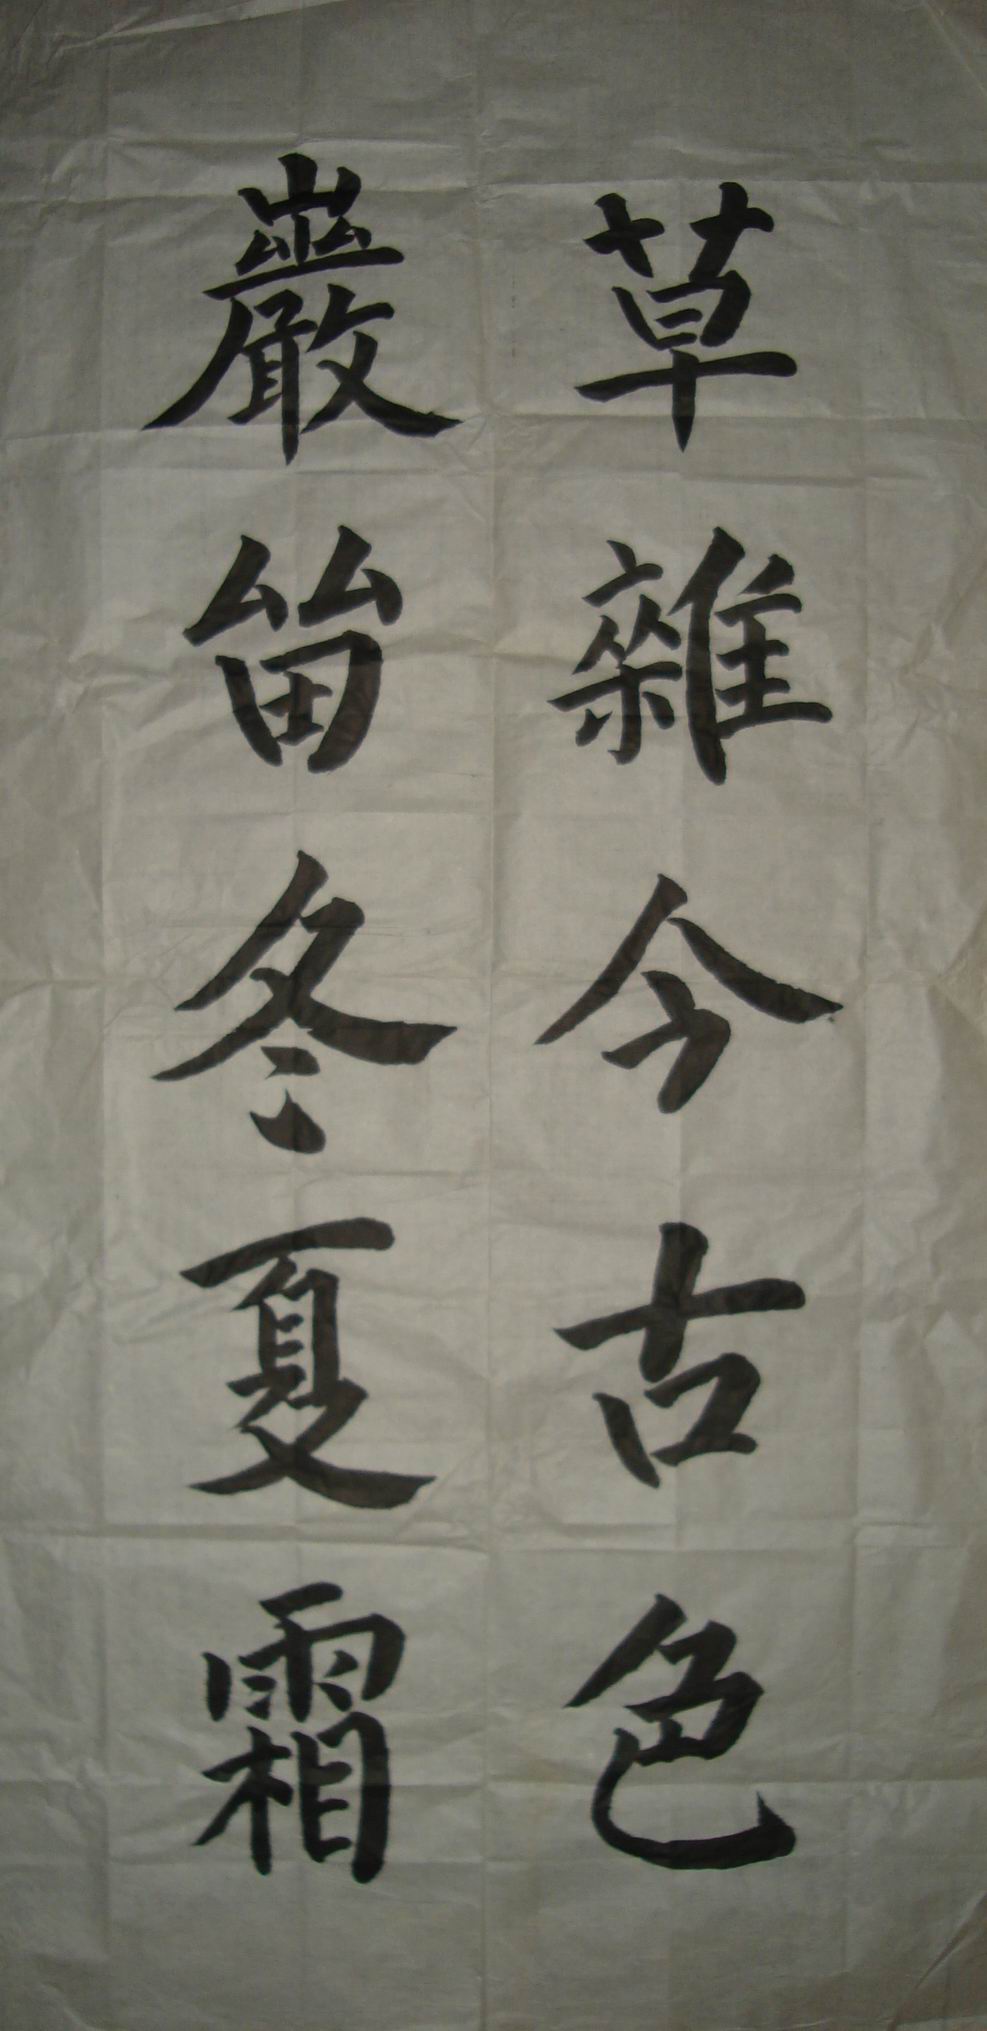 草雜今古色
巖留冬夏霜